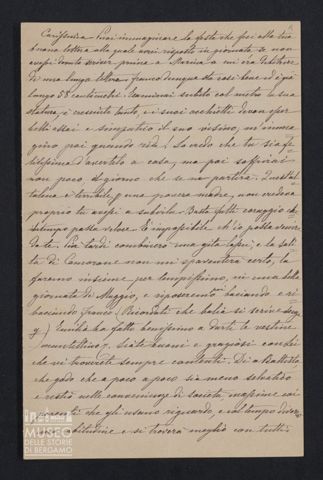 Carissima Puoi immaginare la festa che feci alla tua
buona lettera alla quale avrei risposto in giornata se non
avessi dovuto scriver prima a Marina a cui ero debitrice
di una lunga lettera. Franco dunque sta così bene ed è già
lungo 58 centimetri. Esaminai subito col metro la sua
statura, è cresciuto tanto, e i suoi occhietti devon esser
belli assai e simpatico il suo visino, m'immagino
poi quando ride! Lo credo che tu sia felicissima
d'averlo a casa, ma poi soffrirai
non poco il giorno che se ne partirà.
è terribile, povera madre, non credeva
proprio tu avessi a subirla. Basta fatti coraggio ch
il tempo passa veloce. È impossibile ch'io possa venire
da te. Più tardi combinerò una gita costì; e la salita
di Comorone non mi spaventerà certo, la
faremo insieme per tempissimo, in una bella
giornata di Maggio, e riposeremo baciando e ri
baciando Franco. (Ricordati che balia si scrive senza
g.) Emilia ha fatto benissimo a darti le vestine
siate buoni e graziosi condi
che vi troverete sempre contenti. Di a Battista
che godo che a poco a poco sia meno selvatico
e resti nelle convenienze di società, massime coi
parenti che gli usano riguardo, e col tempo diverrà
un'abitudine e si troverà meglio con tutti.
MUSEO
DELLE STORIE
DI BERGAMO